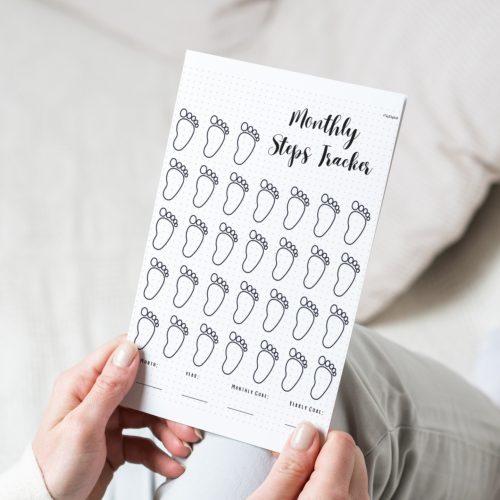 Monthly
Steps Tracker
Month:
Year:
Monthly Goal:
Yearly Goal: